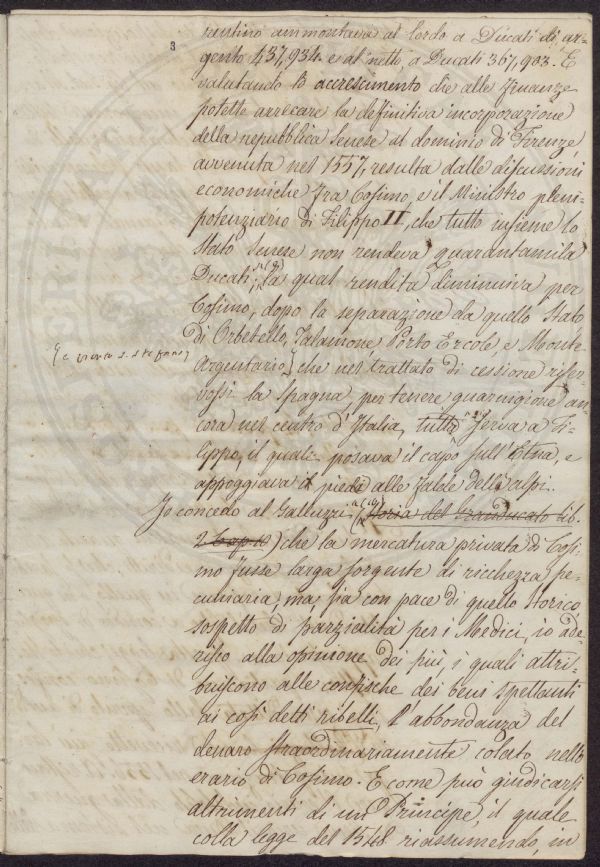 3
rentino ammontava al lordo a Ducati di ar-
gento 437,934. e al netto a Ducati 367,903. E
valutando lo accrescimento che alle finanze
potette arrecare la definitiva incorporazione
della repubblica senese al dominio di Firenze
avvenuta nel 1557, resulta dalle discussioni
economiche fra Cosimo, e il Ministro pleni-
potenziario di Filippo II, che tutto insieme lo
Stato Senese non rendeva quarantamila
Ducati; la qual rendita diminuiva per
Cosimo, dopo la separazione da quello Stato
di Orbetello, Talamone, Porto Ercole, e Monte
Argentario, che nel trattato di cessione riser-
vossi la Spagna, per tenere guarnigione an-
cora nel centro d'Italia, tutta serva a Fi-
lippo, il quale posava il capo sull'Etna, e
appoggiava i piedi alle falde dell'alpi.
Io concedo al Galluzzi (Storia del Granducato lib.
2 Cap) che la mercatura privata di Cosi-
mo fusse larga sorgente di ricchezza pe-
cuniaria, ma, sia con pace di quello storico
sospetto di parzialità per i Medici, io ade-
risco alla opinione dei più, i quali attri-
buiscono alle confische dei beni spettanti
ai così detti ribelli, l'abbondanza del
denaro straordinariamente colato nello
erario di Cosimo. E come può giudicarsi
altrimenti di un Principe, il quale
colla legge del 1548. riassumendo, in